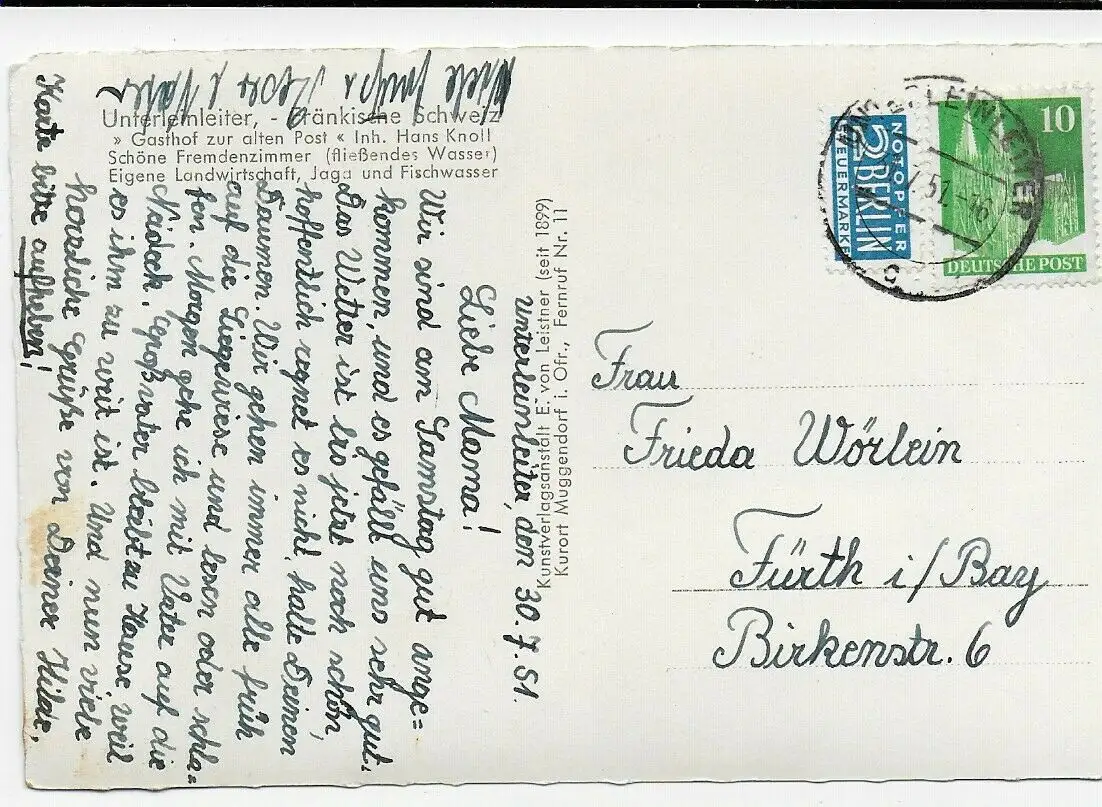 Unterleinleiter, - Fränkische Schweiz
» Gasthof zur alten Post « Inh. Hans Knoll
Schöne Fremdenzimmer (fließendes Wasser)
Eigene Landwirtschaft, Jagd und Fischwasser
Unterleinleiter, den 30.7.51.
Liebe Mama!
Wir sind am Samstag gut ange=
kommen, und es gefällt uns sehr gut.
Das Wetter ist bis jetzt noch schön,
hoffentlich regnet es nicht, halte Deinen
Daumen. Wir gehen immer alle früh
auf die Liegewiese und lesen oder schla=
fen. Morgen gehe ich mit Vater auf die
Neideck. Großvater bleibt zu Hause weil
es ihm zu weit ist. Und nun viele
herzliche Grüße von Deiner Hilde,
Karte bitte aufheben!
Kunstverlagsanstalt E. von Leistner (seit 1899)
Kurort Muggendorf i. Ofr., Fernruf Nr. 11
NOTOPFER
2 BERLIN
STEUERMARKE
10
DEUTSCHE POST
UNTERLEINLEITER
7.51.-
c
Frau
Frieda Wörlein
Fürth i/Bay
Birkenstr. 6